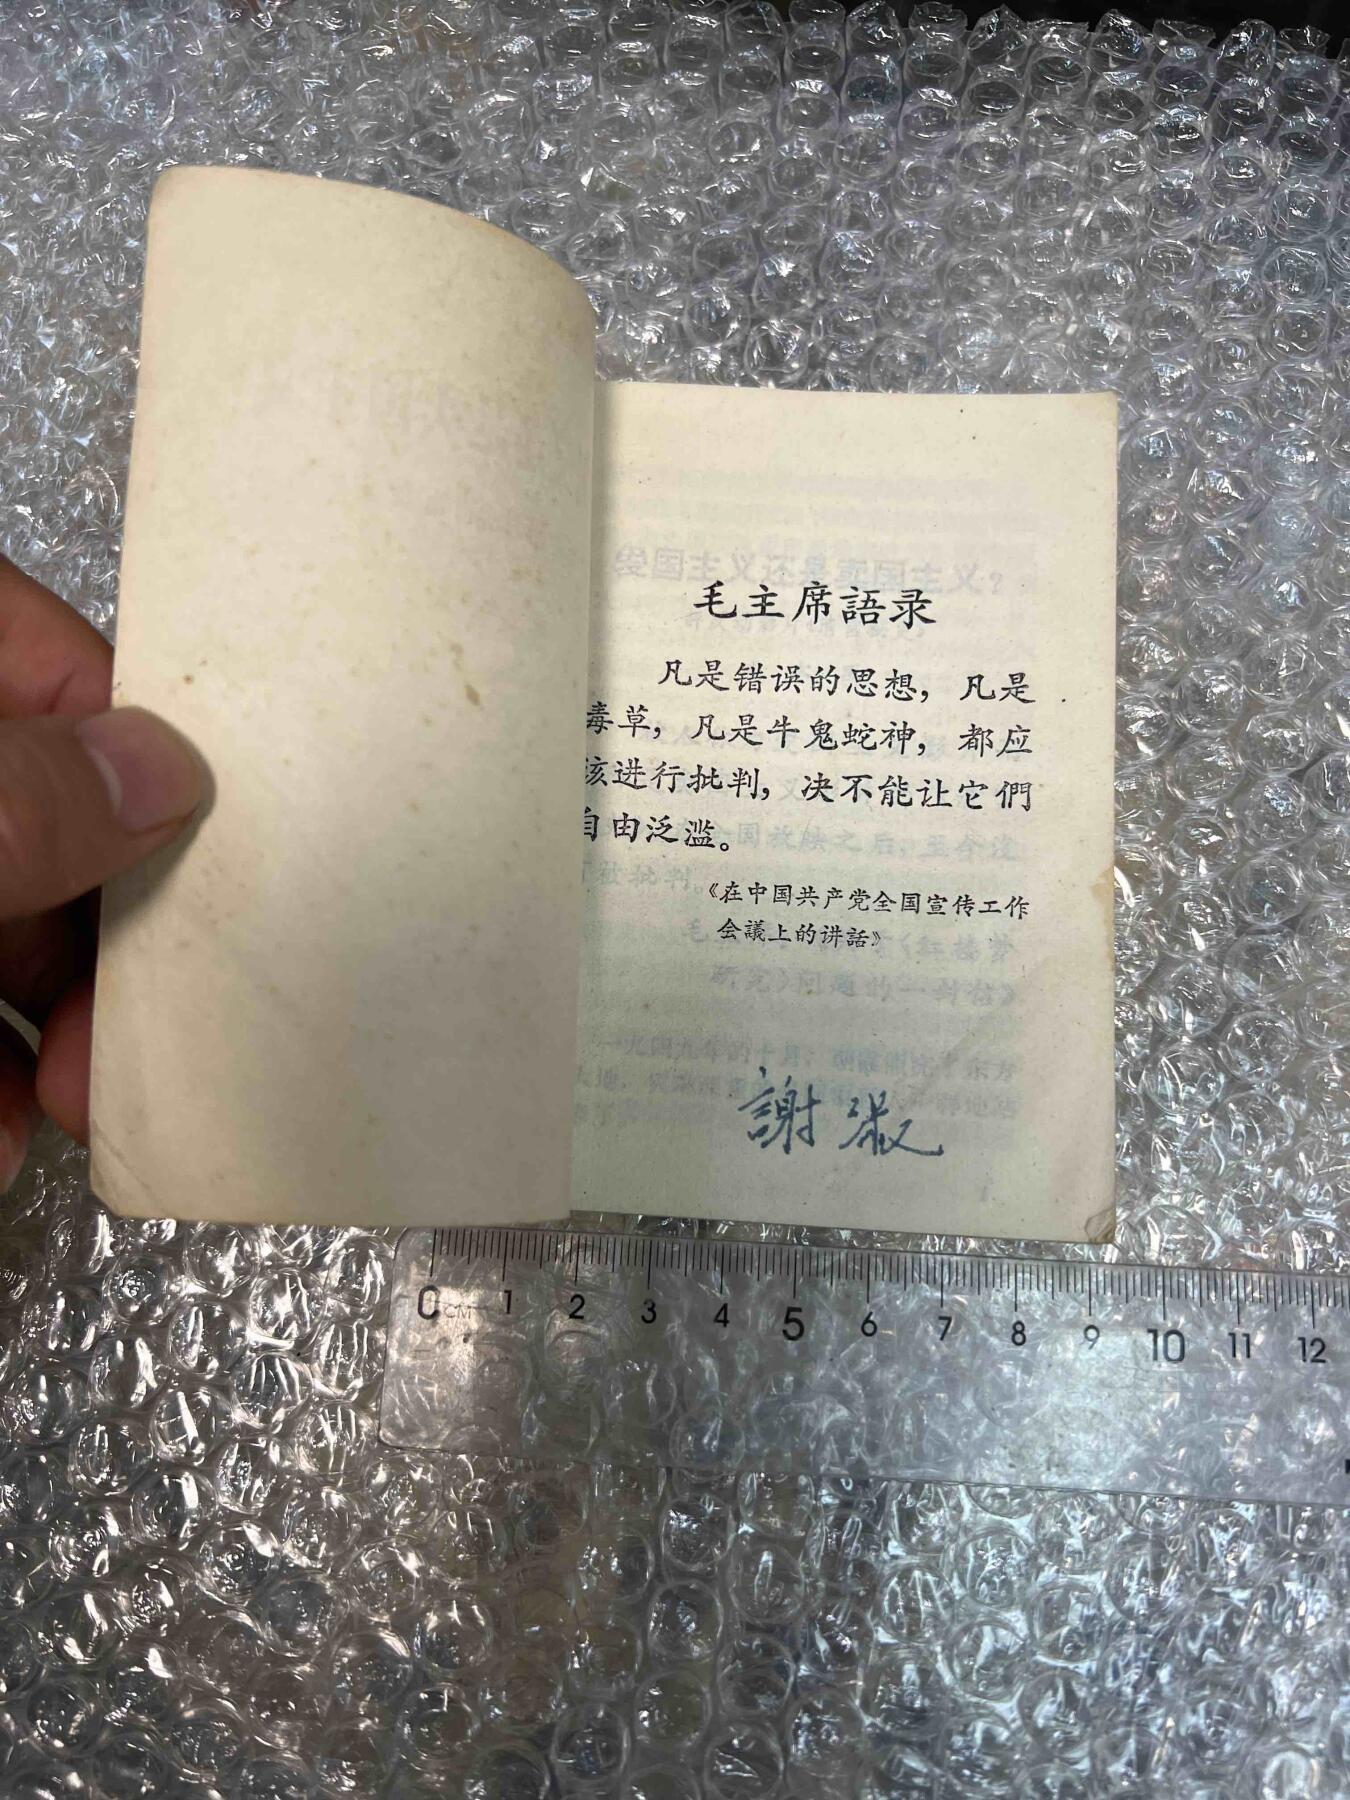 毛主席語录
凡是错误的思想，凡是
毒草，凡是牛鬼蛇神，都应
该进行批判，决不能让它們
自由泛滥。
《在中国共产党全国宣传工作
会議上的讲話》
謝淑
0 CM 1 2 3 4 5 6 7 8 9 10 11 12